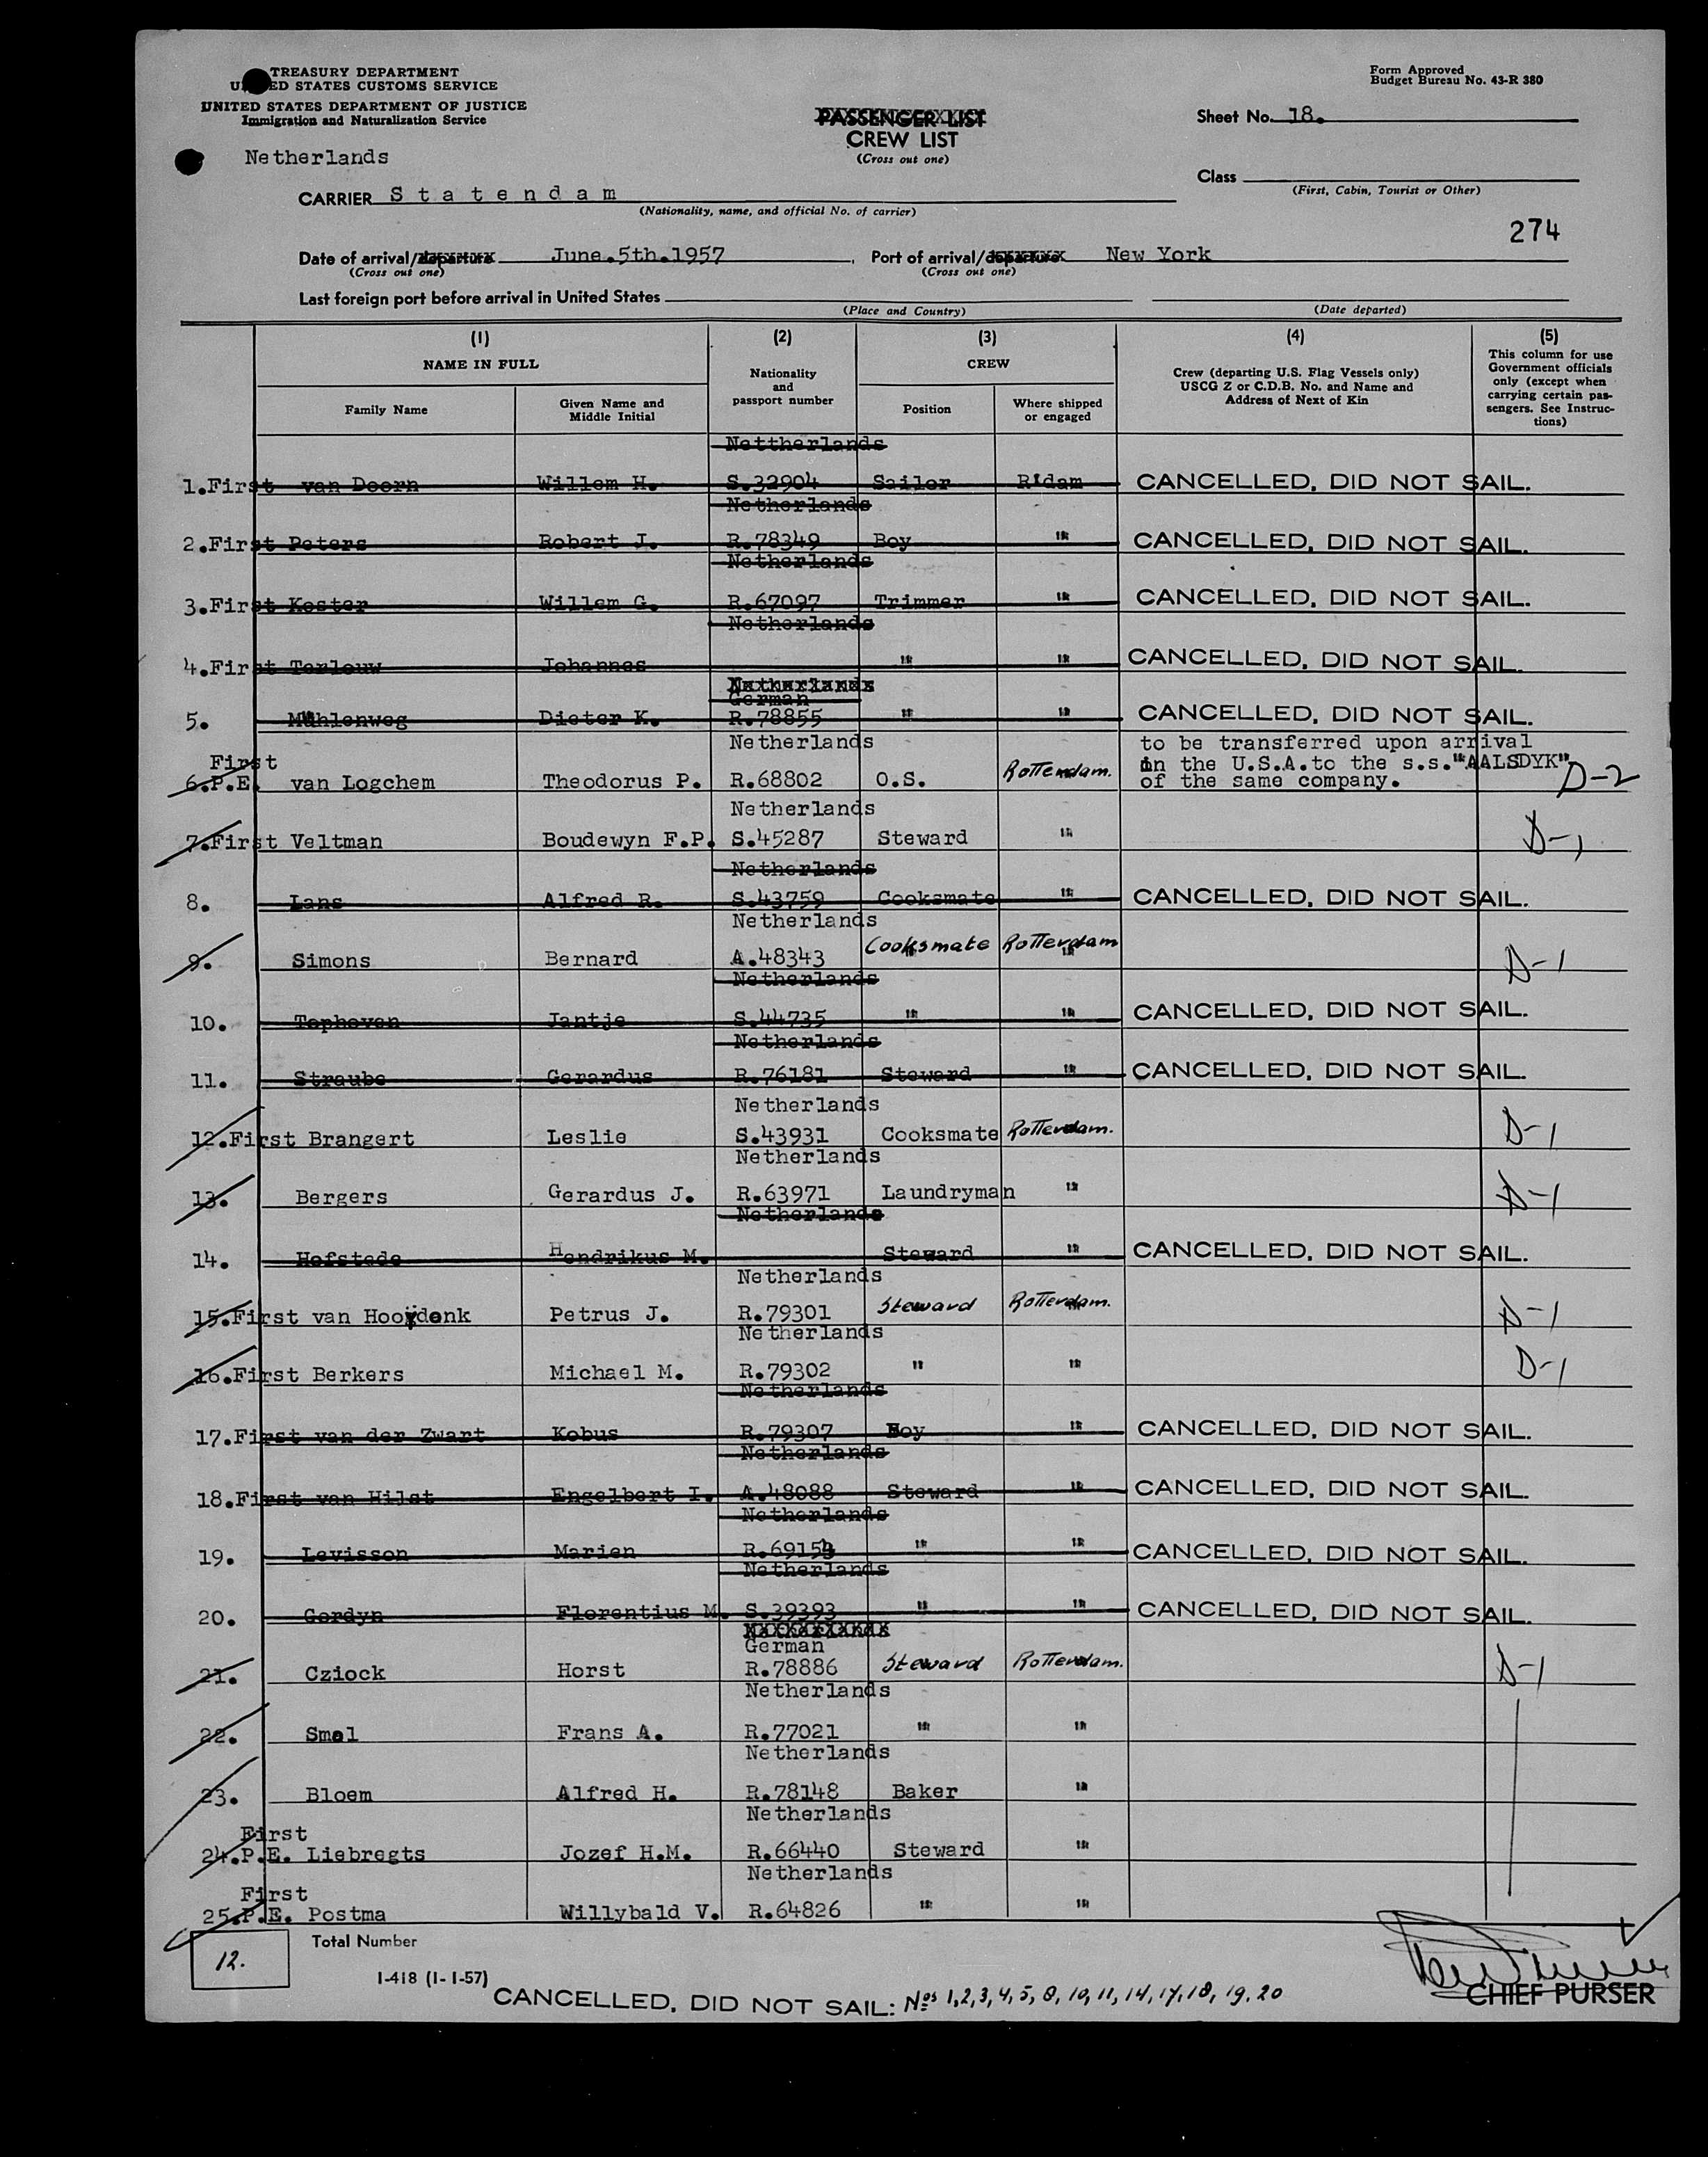 TREASURY DEPARTMENT
UNITED STATES CUSTOMS SERVICE
UNITED STATES DEPARTMENT OF JUSTICE
Immigration and Naturalization Service
Form Approved
Budget Bureau No. 43-R 380
PASSENGER LIST
CREW LIST
(Cross out one)
Sheet No. 18.
Netherlands
Class
(First, Cabin, Tourist or Other)
CARRIER Statendam
(Nationality, name, and official No. of carrier)
274
Date of arrival/departure June.5th.1957 Port of arrival/departure New York
(Cross out one) (Cross out one)
Last foreign port before arrival in United States
(Place and Country) (Date departed)
(1) (2) (3) (4) (5)
NAME IN FULL Nationality and passport number CREW Crew (departing U.S. Flag Vessels only) USCG Z or C.D.B. No. and Name and Address of Next of Kin This column for use Government officials only (except when carrying certain passengers. See Instructions)
Family Name Given Name and Middle Initial Position Where shipped or engaged
Nettherlands
1.First van Doorn Willem H. S.32904 Sailor R'dam CANCELLED, DID NOT SAIL.
Netherlands
2.First Peters Robert J. R.78349 Boy " CANCELLED, DID NOT SAIL.
Netherlands
3.First Koster Willem G. R.67097 Trimmer " CANCELLED, DID NOT SAIL.
Netherlands
4.First Terlouw Johannes " " CANCELLED, DID NOT SAIL.
Netherlands
German
5. Mühlenweg Dieter K. R.78855 " " CANCELLED, DID NOT SAIL.
Netherlands to be transferred upon arrival
First in the U.S.A.to the s.s."AALSDYK"
6.P.E. van Logchem Theodorus P. R.68802 O.S. Rotterdam. of the same company. D-2
Netherlands
7.First Veltman Boudewyn F.P. S.45287 Steward " D-1
Netherlands
8. Lans Alfred R. S.43759 Cooksmate " CANCELLED, DID NOT SAIL.
Netherlands
9. Simons Bernard A.48343 Cooksmate Rotterdam D-1
Netherlands
10. Tophoven Jantje S.44735 " " CANCELLED, DID NOT SAIL.
Netherlands
11. Straube Gerardus R.76181 Steward " CANCELLED, DID NOT SAIL.
Netherlands
12.First Brangert Leslie S.43931 Cooksmate Rotterdam. D-1
Netherlands
13. Bergers Gerardus J. R.63971 Laundryman " D-1
Netherlands
14. Hofstede Hendrikus M. Steward " CANCELLED, DID NOT SAIL.
Netherlands
15.First van Hooydonk Petrus J. R.79301 Steward Rotterdam. D-1
Netherlands
16.First Berkers Michael M. R.79302 " " D-1
Netherlands
17.First van der Zwart Kobus R.79307 Boy " CANCELLED, DID NOT SAIL.
Netherlands
18.First van Hilst Engelbert I. A.48088 Steward " CANCELLED, DID NOT SAIL.
Netherlands
19. Levisson Marien R.69154 " " CANCELLED, DID NOT SAIL.
Netherlands
20. Gordyn Florentius M. S.39393 " " CANCELLED, DID NOT SAIL.
Netherlands
German
21. Cziock Horst R.78886 Steward Rotterdam. D-1
Netherlands
22. Smal Frans A. R.77021 " "
Netherlands
23. Bloem Alfred H. R.78148 Baker "
Netherlands
First
24.P.E. Liebregts Jozef H.M. R.66440 Steward "
Netherlands
First
25.P.E. Postma Willybald V. R.64826 " "
12. Total Number
I-418 (1-1-57)
CANCELLED, DID NOT SAIL: Nos 1,2,3,4,5,8,10,11,14,17,18,19,20
CHIEF PURSER